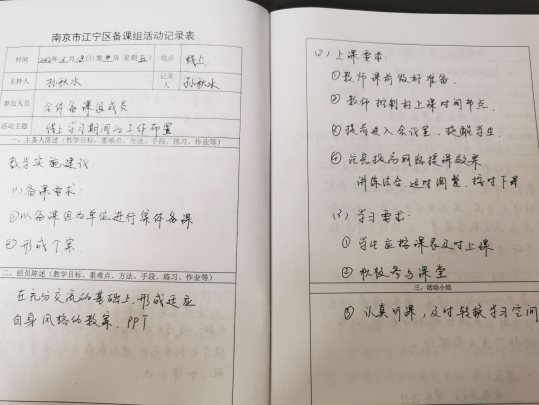 南京市江宁区备课组活动记录表
时间 2022年3月18日(第 周 星期五) 地点 线上
主持人 孙秋水 记录人 孙秋水
参加人员 全体备课组成员
活动主题 线上学习期间的工作布置
一、主备人陈述(教学目标、重难点、方法、手段、练习、作业等)
教学实施建议
(1)备课要求:
①以备课组为单位进行集体备课
②形成个案.
二、组员陈述(教学目标、重难点、方法、手段、练习、作业等)
在充分交流的基础上,形成适应
自身风格的教案、PPT
(2)上课要求:
①教师课前做好准备.
②教师控制好上课时间节点.
③提前进入会议室,提醒学生.
④注意提高网络授课效果
讲练结合.适时调整,按时下课
(3)学习要求:
①学生应按课表及时上课
②积极参与课堂
三、活动小结
③认真听课,及时转换学习空间